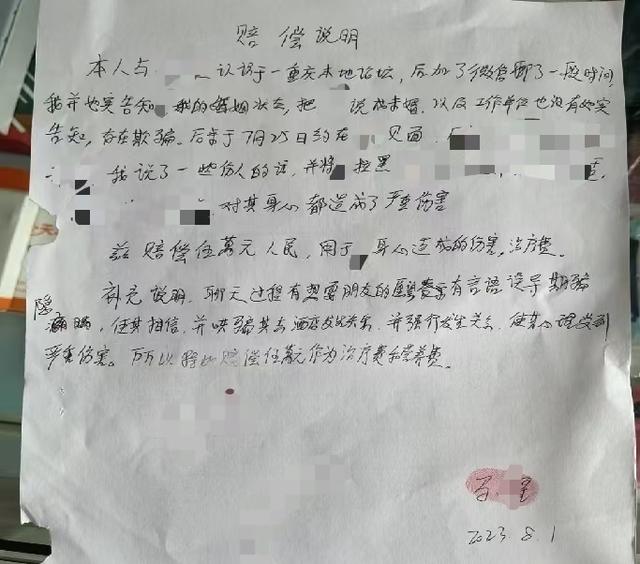 赔偿说明
本人与 认识于一重庆本地论坛，后加了微信聊了一段时间，
我并如实告知 我的婚姻状态，把 说成未婚，以及工作单位也没有如实
告知，存在欺骗。后来于7月25日约在 见面，
我说了一些伤人的话，并将 拉黑
对其身心都造成了严重伤害
兹赔偿伍萬元人民，用于 身心造成的伤害，治疗费。
补充说明，聊天过程有想要朋友的 有言语误导期骗
隐瞒，使其相信，并哄骗其去酒店发生关系，并强行发生关系，使其心理受到
严重伤害。所以 赔偿伍萬元作为治疗费和营养费。
2023.8.1